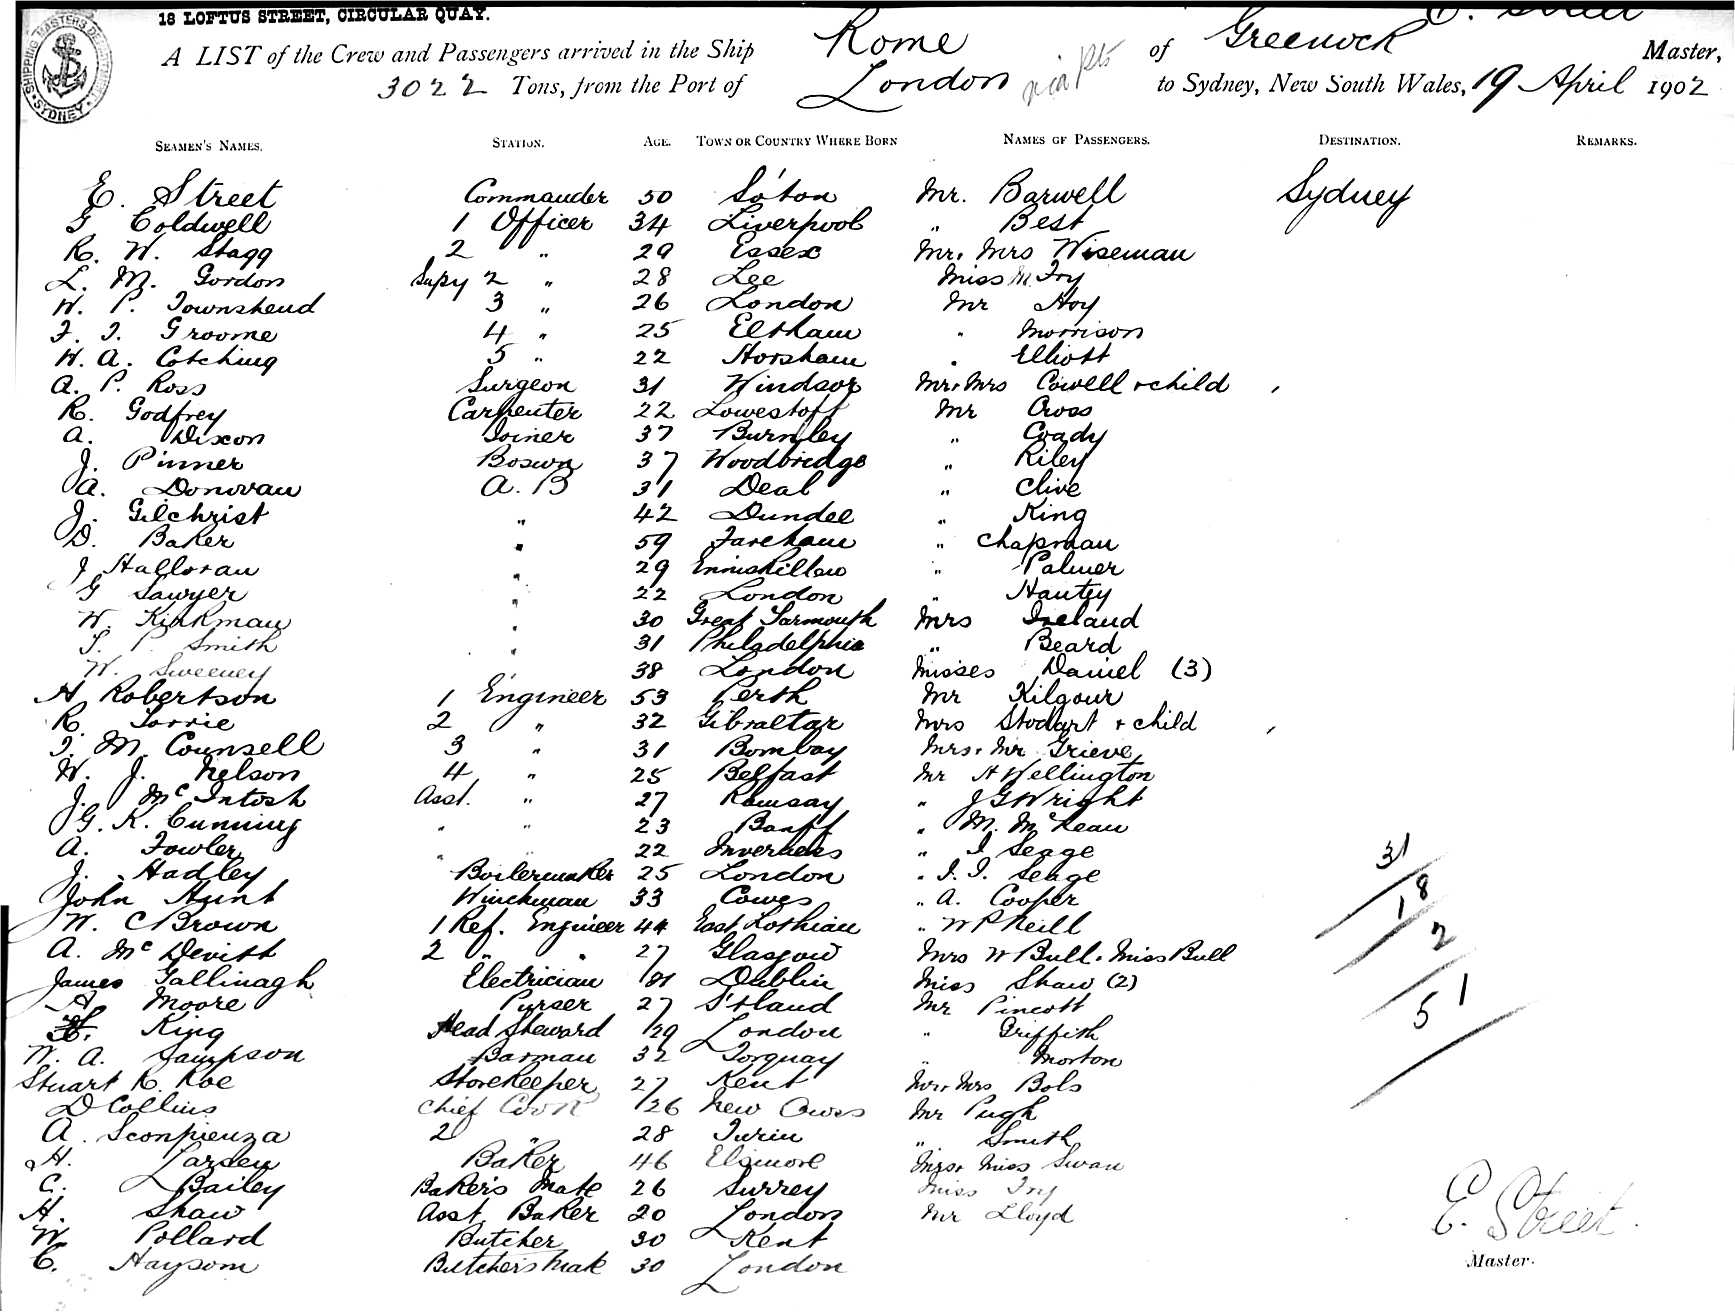 18 LOFTUS STREET, CIRCULAR QUAY. E. Street
A LIST of the Crew and Passengers arrived in the Ship Rome of Greenock Master,
3022 Tons, from the Port of London via pts to Sydney, New South Wales, 19 April 1902
SHIPPING MASTERS DEPARTMENT SYDNEY
SEAMEN'S NAMES. STATION. AGE. TOWN OR COUNTRY WHERE BORN NAMES OF PASSENGERS. DESTINATION. REMARKS.
E. Street Commander 50 So'ton Mr. Barwell Sydney
G Coldwell 1 Officer 34 Liverpool " Best
R. W. Stagg 2 " 29 Essex Mr. Mrs Wiseman
L. M. Gordon Supy 2 " 28 Lee Miss M. Fry
W. P. Townshend 3 " 26 London Mr Hoy
F. J. Groome 4 " 25 Eltham " Morrison
W. A. Cotching 5 " 22 Horsham " Elliott
A. P. Ross Surgeon 31 Windsor Mr. Mrs Cowell + child
R. Godfrey Carpenter 22 Lowestoft Mr Cross
A. Dixon Joiner 37 Burnley " Coady
J. Pinner Bosun 37 Woodbridge " Riley
A. Donovan A. B 31 Deal " Clive
J. Gilchrist " 42 Dundee " King
D. Baker " 59 Fareham " Chapman
J Halloran " 29 Enniskillen " Palmer
G Sawyer " 22 London "
W. Kirkman " 30 Great Yarmouth Mrs Ireland
P. Smith " 31 Philadelphia " Beard
W. Sweeney 38 London Misses Daniel (3)
H Robertson 1 Engineer 53 Perth Mr Kilgour
R. Torrie 2 " 32 Gibraltar Mrs Stodart + child
J. M. Counsell 3 " 31 Bombay Mrs. Mr Grieve
W. J. Nelson 4 " 25 Belfast Mr H Wellington
J. McIntosh Asst. " 27 Ramsay " J G Wright
G. K. Cumming " " 23 Banff " M. McKean
A. Fowler " " 22 Inverness " J Seage
J. Hadley Boilermaker 25 London " J. J. Seage
John Hunt Winchman 33 Cowes " A. Cooper
W. C Brown 1 Ref. Engineer 44 East Lothian " W P Neill
A. McDevitt 2 " " 27 Glasgow Mrs W Bull. Miss Bull
James Gallinagh Electrician Dublin Miss Shaw (2)
A. Moore Purser 27 S'tland Mr Pincott
King Head Steward 29 London " Griffith
W. A. Sampson Barman 32 Torquay " Morton
Stuart R. Roe Storekeeper 27 Kent Mr. Mrs Bols
D Collins Chief Cook 26 New Cross Mr Pugh
A. Sconpienza 2 " 28 Turin " Smith
H. Larsen Baker 46 Elsinore Mrs. Miss Swan
C. Bailey Bakers Mate 26 Surrey Miss Fry
H. Shaw Asst Baker 20 London Mr Lloyd
W Pollard Butcher 30 Kent
C. Haysom Butchers Mate 30 London
31
18
2
51
E. Street
Master.